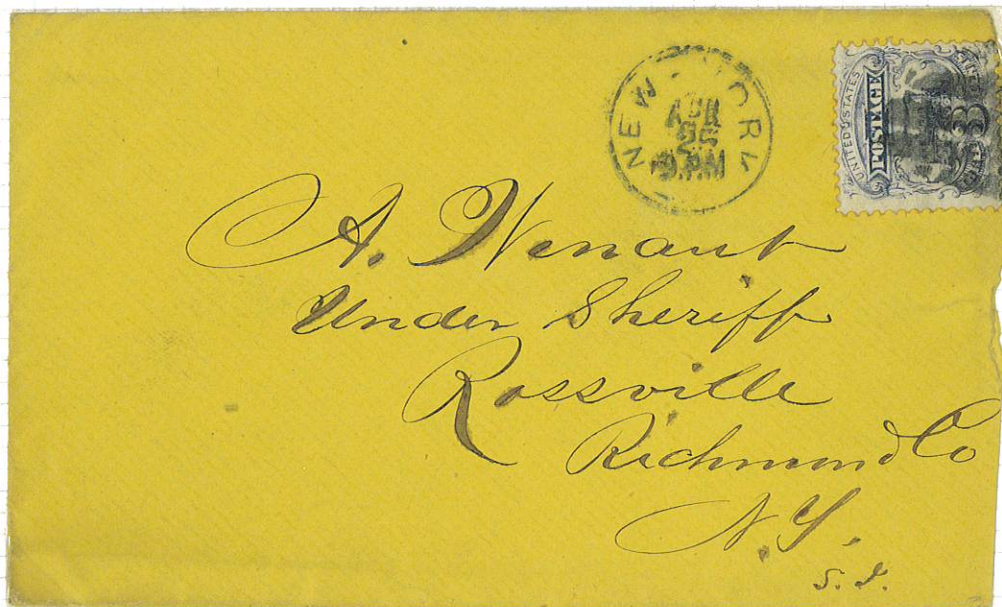 NEW-YORK
APR
25
P.M
UNITED STATES
POSTAGE
3
A. Winant
Under Sheriff
Rossville
Richmond Co
N.Y.
S.I.